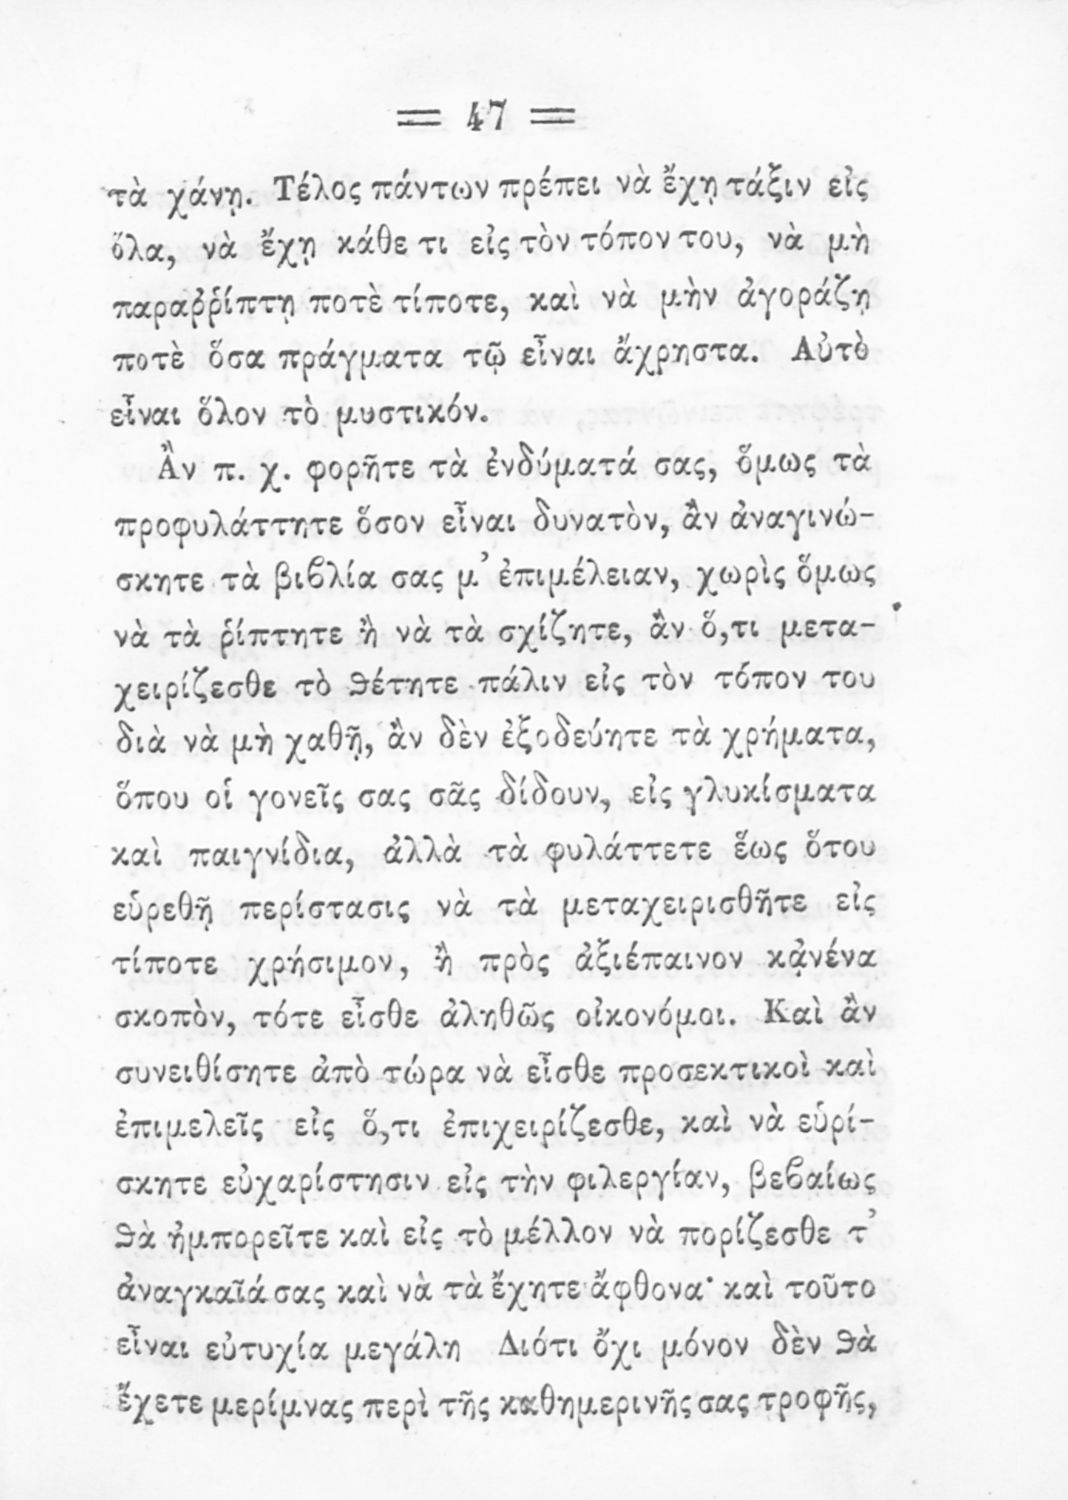 = 47 =
τὰ χάνῃ. Τέλος πάντων πρέπει νὰ ἔχῃ τάξιν εἰς
ὅλα, νὰ ἔχῃ κάθε τι εἰς τὸν τόπον του, νὰ μὴ
παραῤῥίπτῃ ποτὲ τίποτε, καὶ νὰ μὴν ἀγοράζῃ
ποτὲ ὅσα πράγματα τῷ εἶναι ἄχρηστα. Αὐτὸ
εἶναι ὅλον τὸ μυστικόν.
Ἂν π. χ. φορῆτε τὰ ἐνδύματά σας, ὅμως τὰ
προφυλάττητε ὅσον εἶναι δυνατὸν, ἂν ἀναγινώ-
σκητε τὰ βιϐλία σας μ’ ἐπιμέλειαν, χωρὶς ὅμως
νὰ τὰ ῥίπτητε ἢ νὰ τὰ σχίζητε, ἂν ὅ,τι μετα-
χειρίζεσθε τὸ ϑέτητε πάλιν εἰς τὸν τόπον του
διὰ νὰ μὴ χαθῇ, ἂν δὲν ἐξοδεύητε τὰ χρήματα,
ὅπου οἱ γονεῖς σας σᾶς δίδουν, εἰς γλυκίσματα
καὶ παιγνίδια, ἀλλὰ τὰ φυλάττετε ἕως ὅτου
εὑρεθῇ περίστασις νὰ τὰ μεταχειρισθῆτε εἰς
τίποτε χρήσιμον, ἢ πρὸς ἀξιέπαινον κᾀνένα
σκοπὸν, τότε εἶσθε ἀληθῶς οἰκονόμοι. Καὶ ἂν
συνειθίσητε ἀπὸ τώρα νὰ εἶσθε προσεκτικοὶ καὶ
ἐπιμελεῖς εἰς ὅ,τι ἐπιχειρίζεσθε, καὶ νὰ εὑρί-
σκητε εὐχαρίστησιν εἰς τὴν φιλεργίαν, βεϐαίως
ϑὰ ἠμπορεῖτε καὶ εἰς τὸ μέλλον νὰ πορίζεσθε τ’
ἀναγκαῖά σας καὶ νὰ τὰ ἔχητε ἄφθονα· καὶ τοῦτο
εἶναι εὐτυχία μεγάλη Διότι ὄχι μόνον δὲν ϑὰ
ἔχετε μερίμνας περὶ τῆς καθημερινῆς σας τροφῆς,